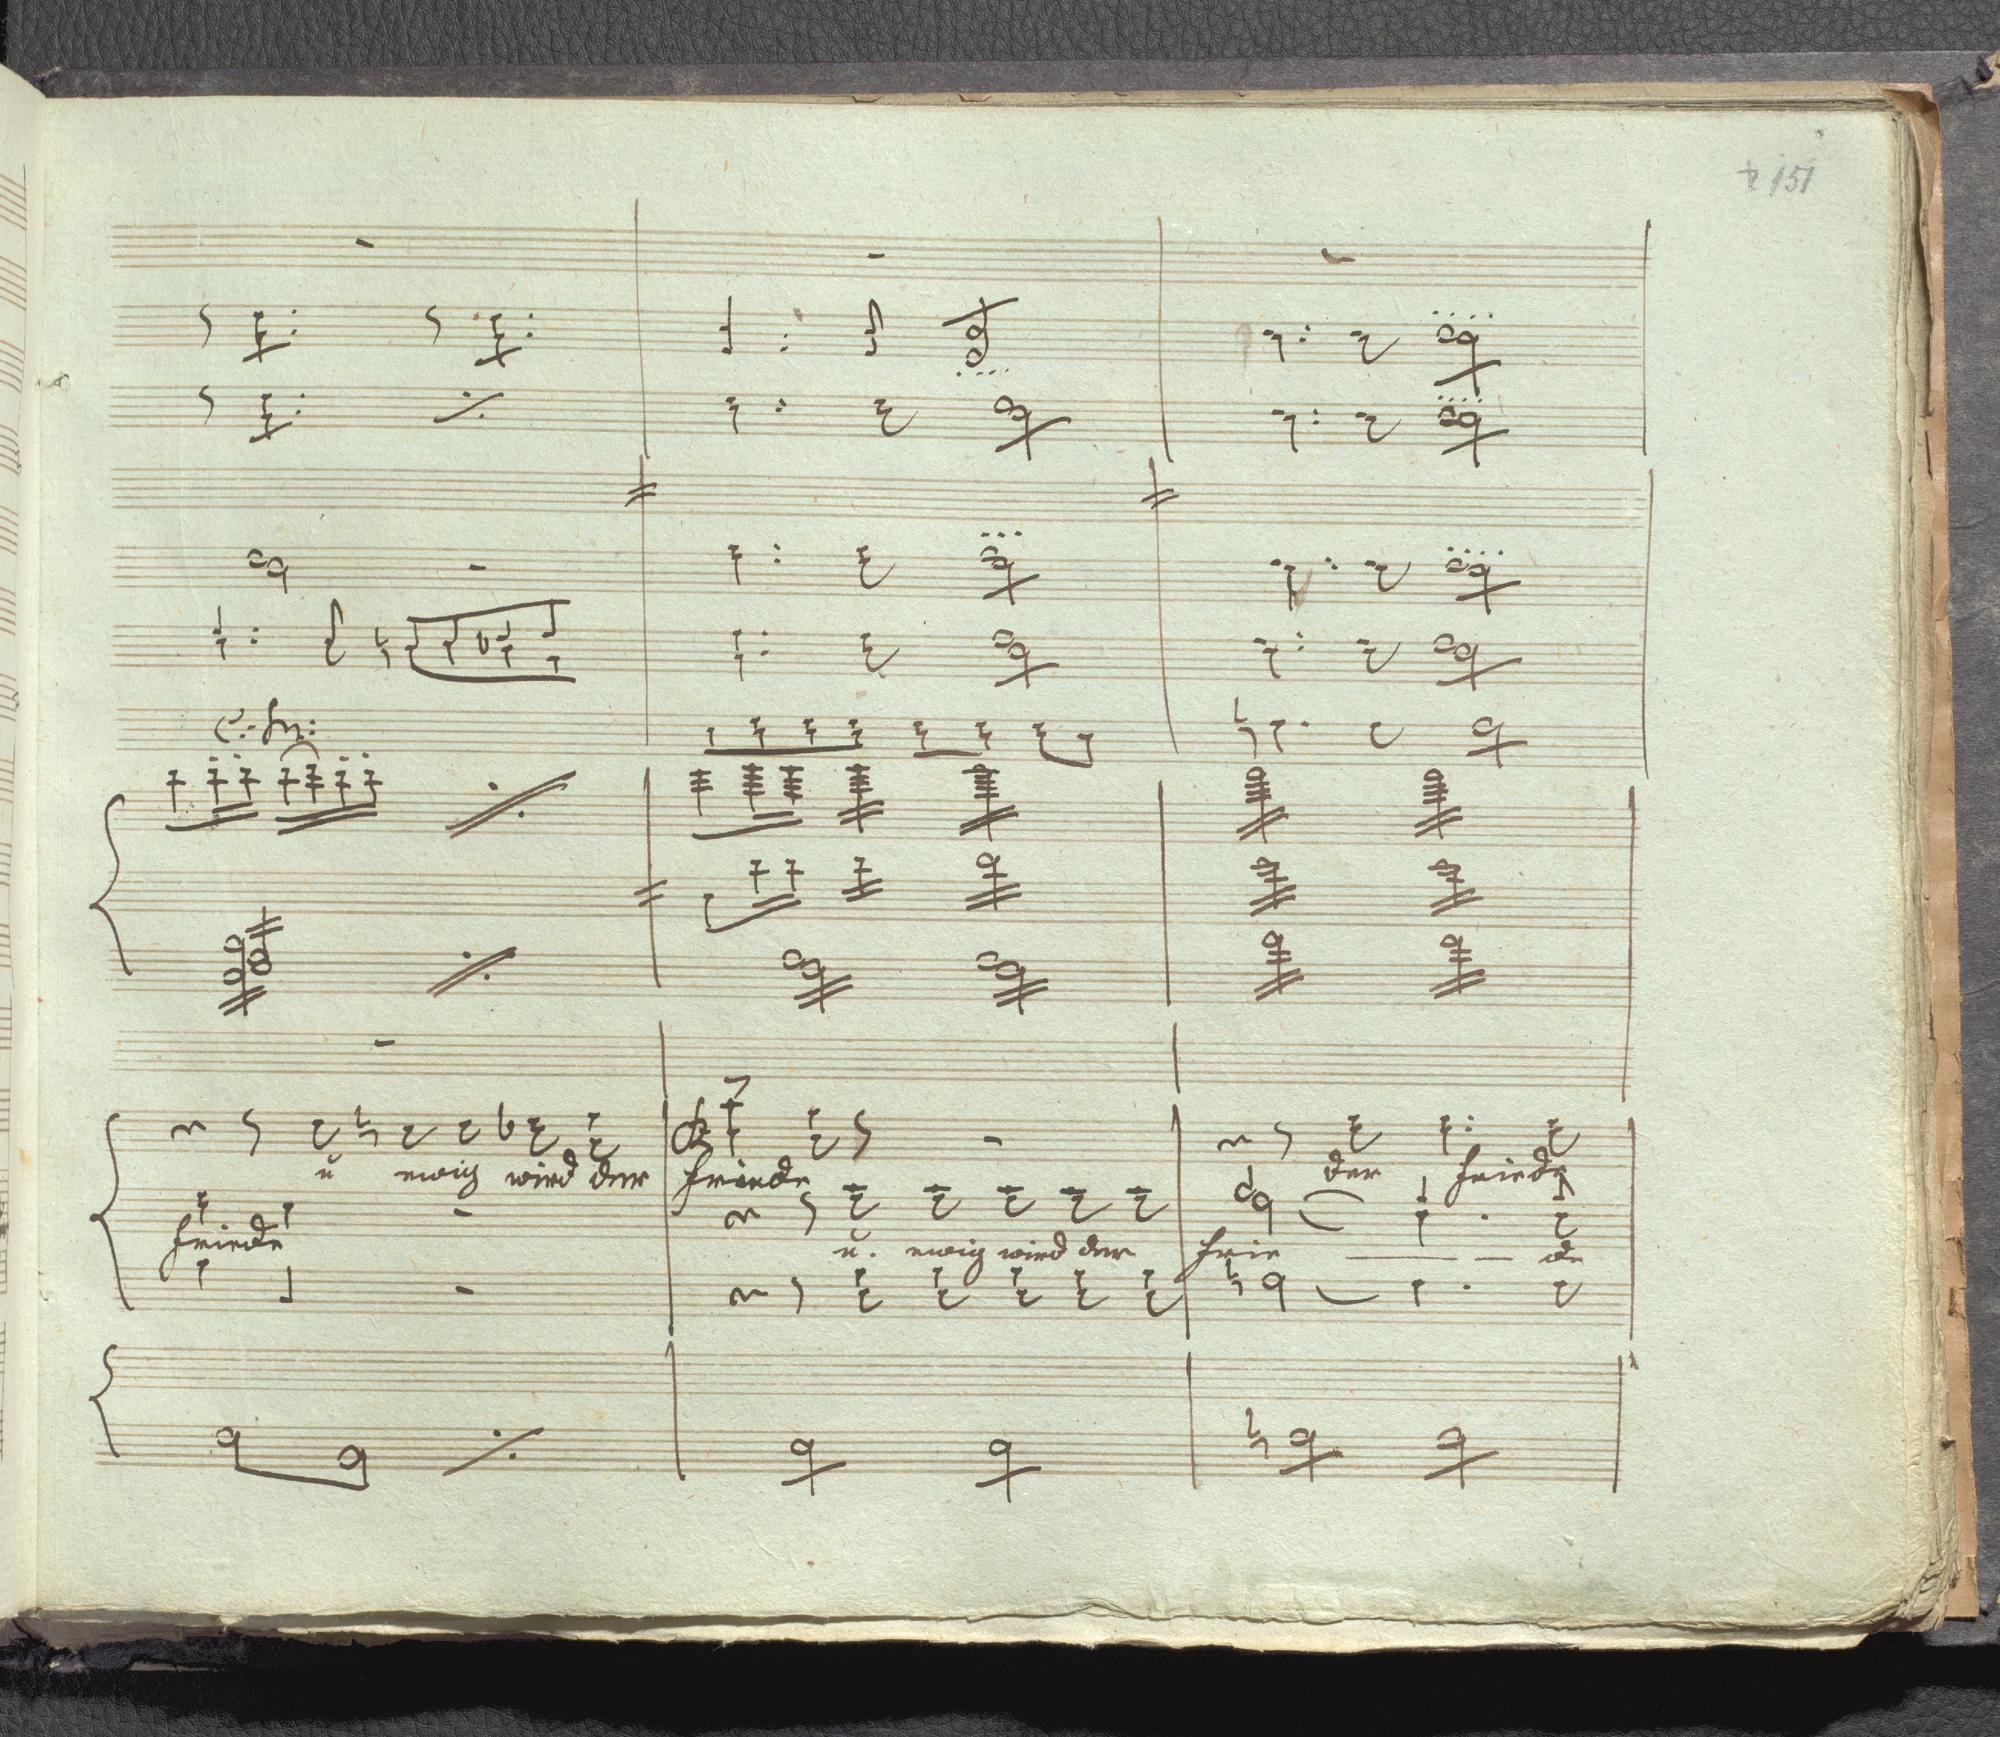 151
C: fn:
7
u ewig wird der Friede der Friede
Friede u. ewig wird der Frie — — de